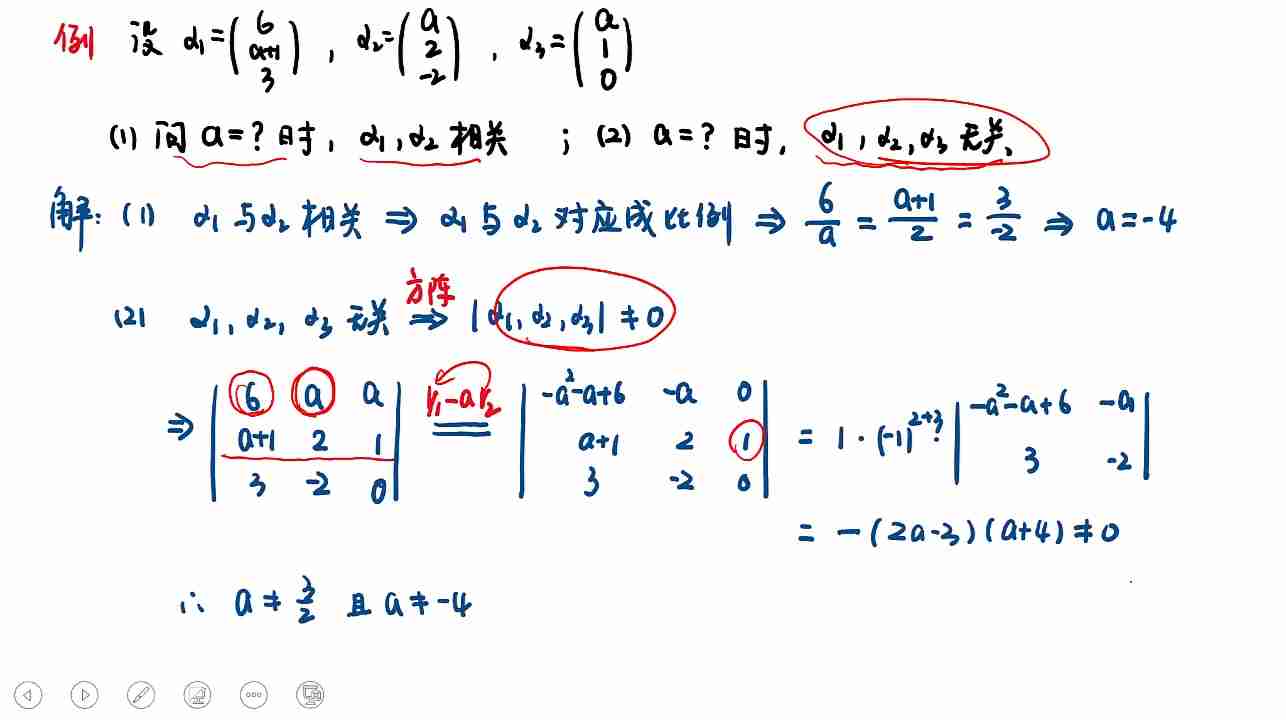 例 设 α₁=(6 a+1 3), α₂=(a 2 -2), α₃=(a 1 0)
(1) 问 a=? 时, α₁,α₂ 相关 ; (2) a=? 时, α₁,α₂,α₃ 无关、
解: (1) α₁与α₂相关 ⇒ α₁与α₂对应成比例 ⇒ 6/a = a+1/2 = 3/-2 ⇒ a=-4
(2) α₁,α₂,α₃ 无关 方阵 ⇒ |α₁,α₂,α₃| ≠ 0
⇒ |6 a a| r₁-ar₂ |-a²-a+6 -a 0| = 1·(-1)²⁺³· |-a²-a+6 -a|
|a+1 2 1| |a+1 2 1| |3 -2|
|3 -2 0| |3 -2 0|
= -(2a-3)(a+4) ≠ 0
∴ a ≠ 3/2 且 a ≠ -4